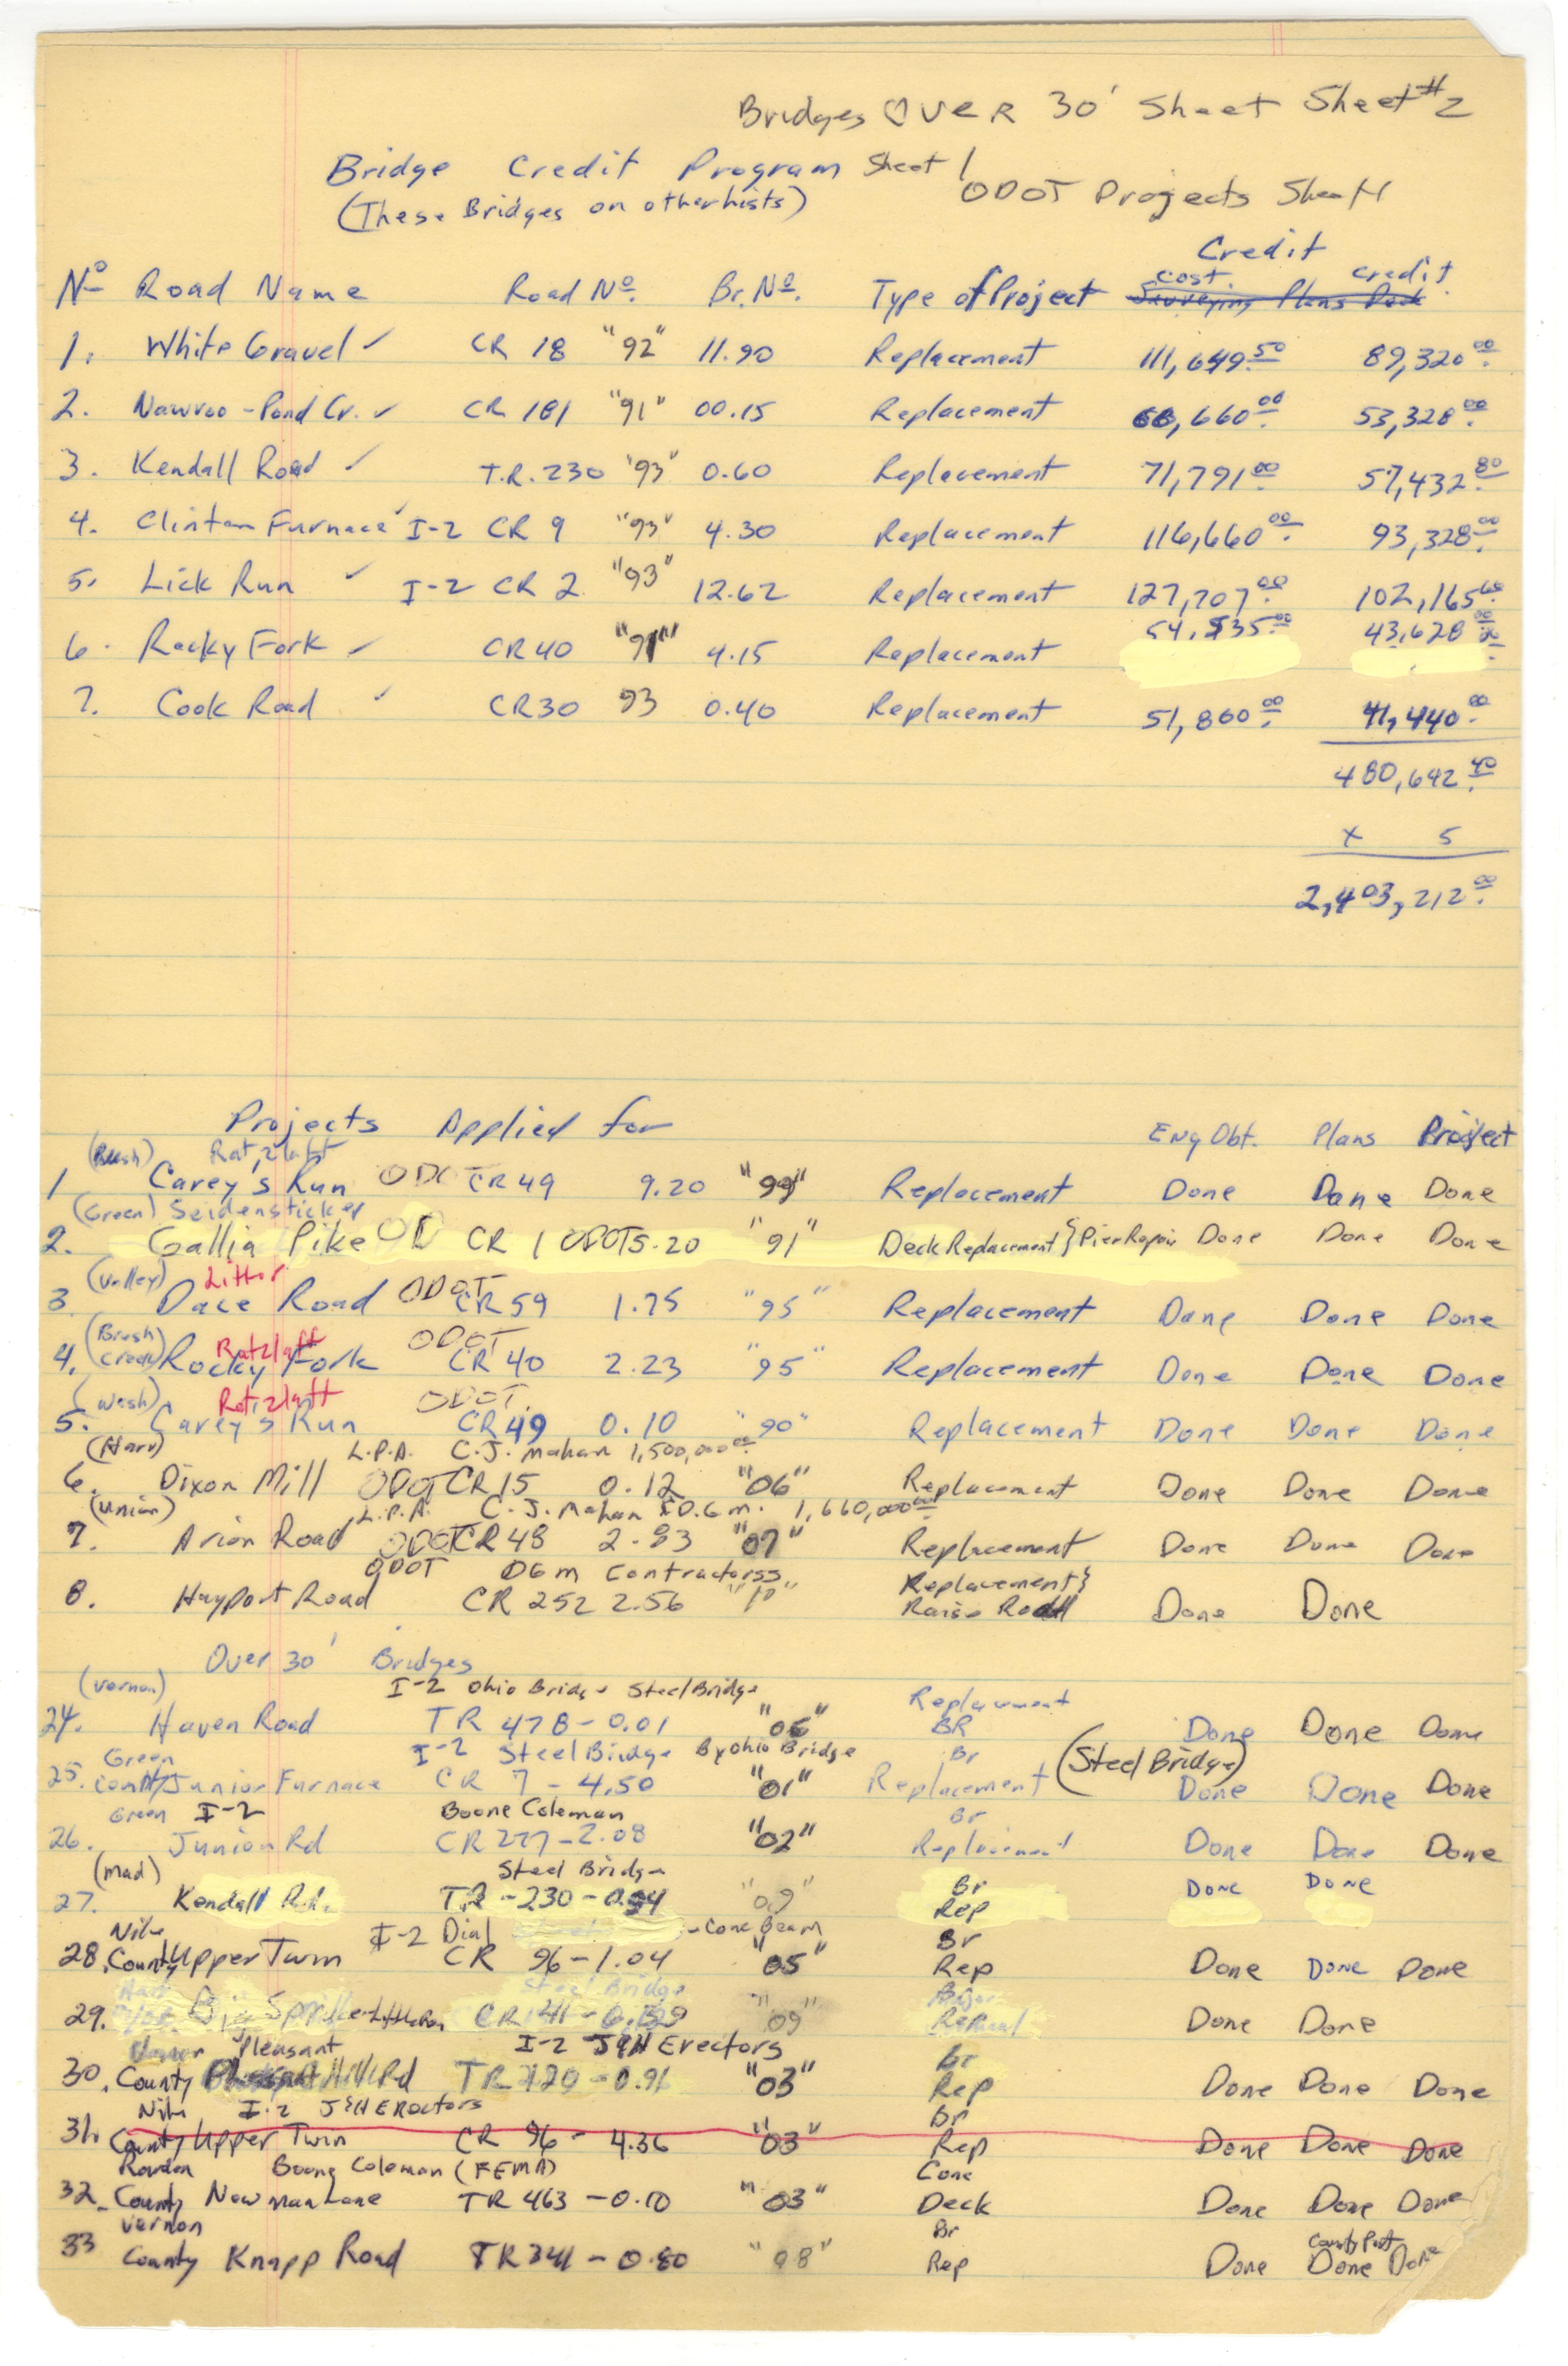 Bridges OVER 30' Sheet Sheet #2
Bridge Credit Program Sheet 1
ODOT Projects Sheet
(These Bridges on other lists)
Credit
Nº Road Name Road Nº. Br. Nº. Type of Project Cost credit
Surveying Plans
1. White Gravel ✓ CR 18 "92" 11.90 Replacement 111,649.50 89,320.00
2. Nawvoo - Pond Cr. ✓ CR 181 "91" 00.15 Replacement 66,660.00 53,328.00
3. Kendall Road ✓ T.R. 230 "93" 0.60 Replacement 71,791.00 57,432.80
4. Clinton Furnace ✓ I-2 CR 9 "93" 4.30 Replacement 116,660.00 93,328.00
5. Lick Run ✓ I-2 CR 2 "93" 12.62 Replacement 127,707.00 102,165.60
6. Rocky Fork ✓ CR 40 "91" 4.15 Replacement 54,535.00 43,628.00
7. Cook Road ✓ CR30 93 0.40 Replacement 51,860.00 41,440.00
480,642.40
x 5
2,403,212.00
Projects Applied for Eng Obt. Plans Project
(Bush) Ratzlaff
1 Carey's Run CR 49 9.20 "99" Replacement Done Done Done
(Green) Seidensticker
2. Gallia Pike OD CR 1 ODOT 5.20 "91" Deck Replacement } Pier Repair Done Done Done
(Valley)
3. Dace Road ODOT CR 59 1.75 "95" Replacement Done Done Done
(Brush Creek) Ratzlaff ODOT
4. Rocky Fork CR 40 2.23 "95" Replacement Done Done Done
(Wash). Ratzlaff ODOT
5. Carey's Run CR 49 0.10 "90" Replacement Done Done Done
(Harr) L.P.A. C.J. Mahan 1,500,000.00
6. Dixon Mill ODOT CR 15 0.12 "06" Replacement Done Done Done
(Union) L.P.A. C.J. Mahan & D.G.M. 1,660,000.00
7. Arion Road ODOT CR 48 2.83 "07" Replacement Done Done Done
ODOT DGM Contractorss
8. Hayport Road CR 252 2.56 Replacement } Raise Road Done Done
Over 30' Bridges
(Vernon) I-2 Ohio Bridge Steel Bridge
24. Haven Road TR 478-0.01 Replacement BR Done Done Done
Green I-2 Steel Bridge By Ohio Bridge
25. County Junior Furnace CR 7 - 4.50 "01" Br Replacement (Steel Bridge) Done Done Done
Green I-2 Boone Coleman
26. Junion Rd CR 277-2.08 "02" Br Replacement Done Done Done
(Mad) Steel Bridge
27. Kendall Rd. TR-230- "09" Br Rep Done Done
Nile I-2 Dial - Conc Beam
28. County Upper Twin CR 96-1.04 "05" Br Rep Done Done Done
Steel Bridge
29. CR 141 - "09" Done Done
Pleasant I-2 J&H Erectors
30. County Hill Rd TR 720 - 0.96 "03" Br Rep Done Done Done
Nile I-2 J&H Erectors
31. County Upper Twin CR 96 - 4.36 "03" Br Rep Done Done Done
Boone Coleman (FEMA)
32. County Newman Lane TR 463 - 0.10 "03" Conc Deck Done Done Done
Vernon
33 County Knapp Road TR 341 - 0.80 "98" Br Rep Done County Part Done Done